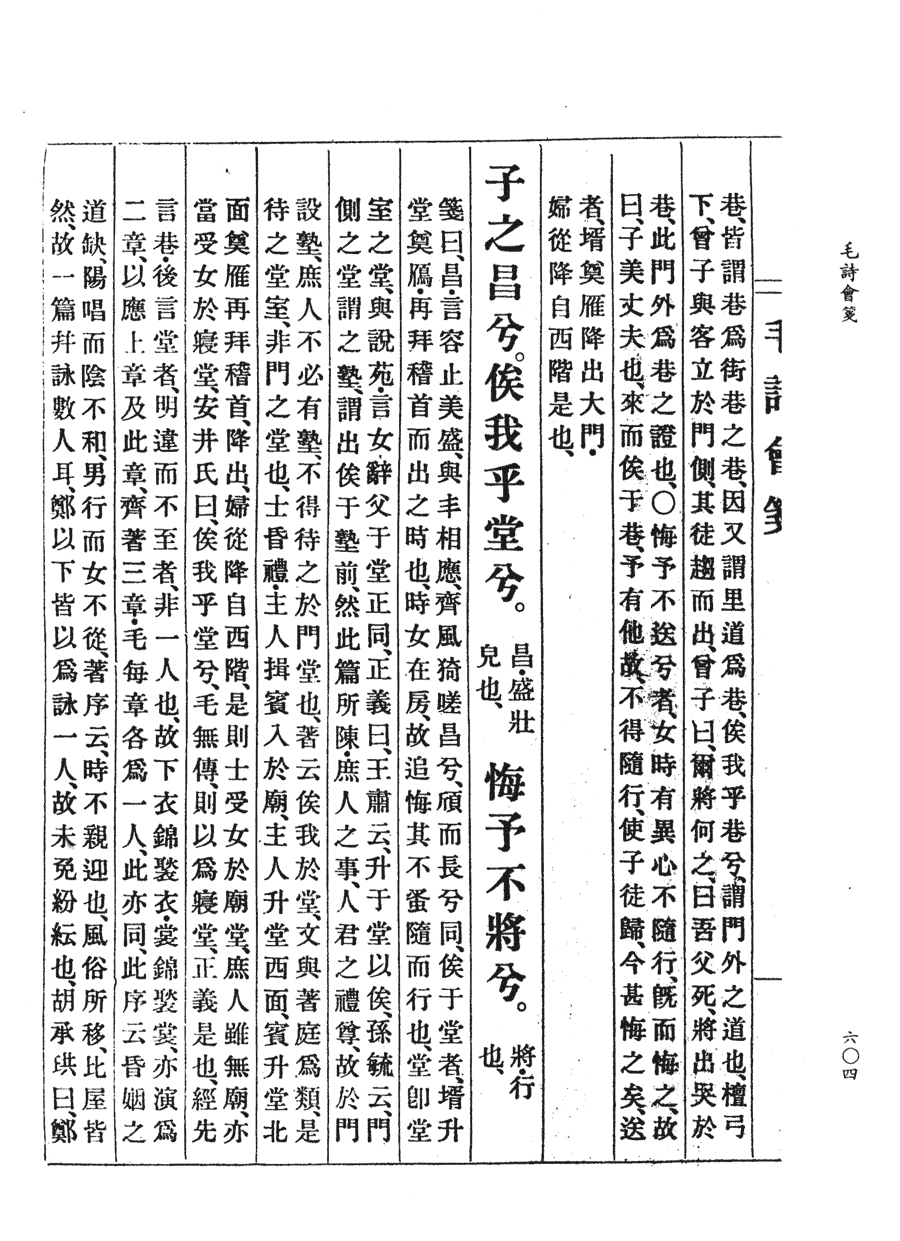 毛詩會箋
六〇四
毛詩會箋
巷、皆謂巷爲街巷之巷、因又謂里道爲巷、俟我乎巷兮、謂門外之道也、檀弓
下、曾子與客立於門側、其徒趨而出、曾子曰、爾將何之、曰吾父死、將出哭於
巷、此門外爲巷之證也、〇悔予不送兮者、女時有異心不隨行、旣而悔之、故
曰、子美丈夫也、來而俟于巷、予有他故、不得隨行、使子徒歸、今甚悔之矣、送
者、壻奠雁降出大門・
婦從降自西階是也、
子之昌兮。俟我乎堂兮。昌・盛壯皃也、悔予不將兮。將・行也、
箋曰、昌・言容止美盛、與丰相應、齊風猗嗟昌兮、頎而長兮同、俟于堂者、壻升
堂奠鴈・再拜稽首而出之時也、時女在房、故追悔其不蚤隨而行也、堂卽堂
室之堂、與說苑・言女辭父于堂正同、正義曰、王肅云、升于堂以俟、孫毓云、門
側之堂謂之塾、謂出俟于塾前、然此篇所陳・庶人之事、人君之禮尊、故於門
設塾、庶人不必有塾、不得待之於門堂也、著云俟我於堂、文與著庭爲類、是
待之堂室、非門之堂也、士昏禮・主人揖賓入於廟、主人升堂西面、賓升堂北
面奠雁再拜稽首、降出、婦從降自西階、是則士受女於廟堂、庶人雖無廟、亦
當受女於寢堂、安井氏曰、俟我乎堂兮、毛無傳、則以爲寢堂、正義是也、經先
言巷・後言堂者、明違而不至者、非一人也、故下衣錦褧衣・裳錦褧裳、亦演爲
二章、以應上章及此章、齊著三章・毛每章各爲一人、此亦同、此序云昏姻之
道缺、陽唱而陰不和、男行而女不從、著序云、時不親迎也、風俗所移、比屋皆
然、故一篇幷詠數人耳、鄭以下皆以爲詠一人、故未免紛紜也、胡承珙曰、鄭